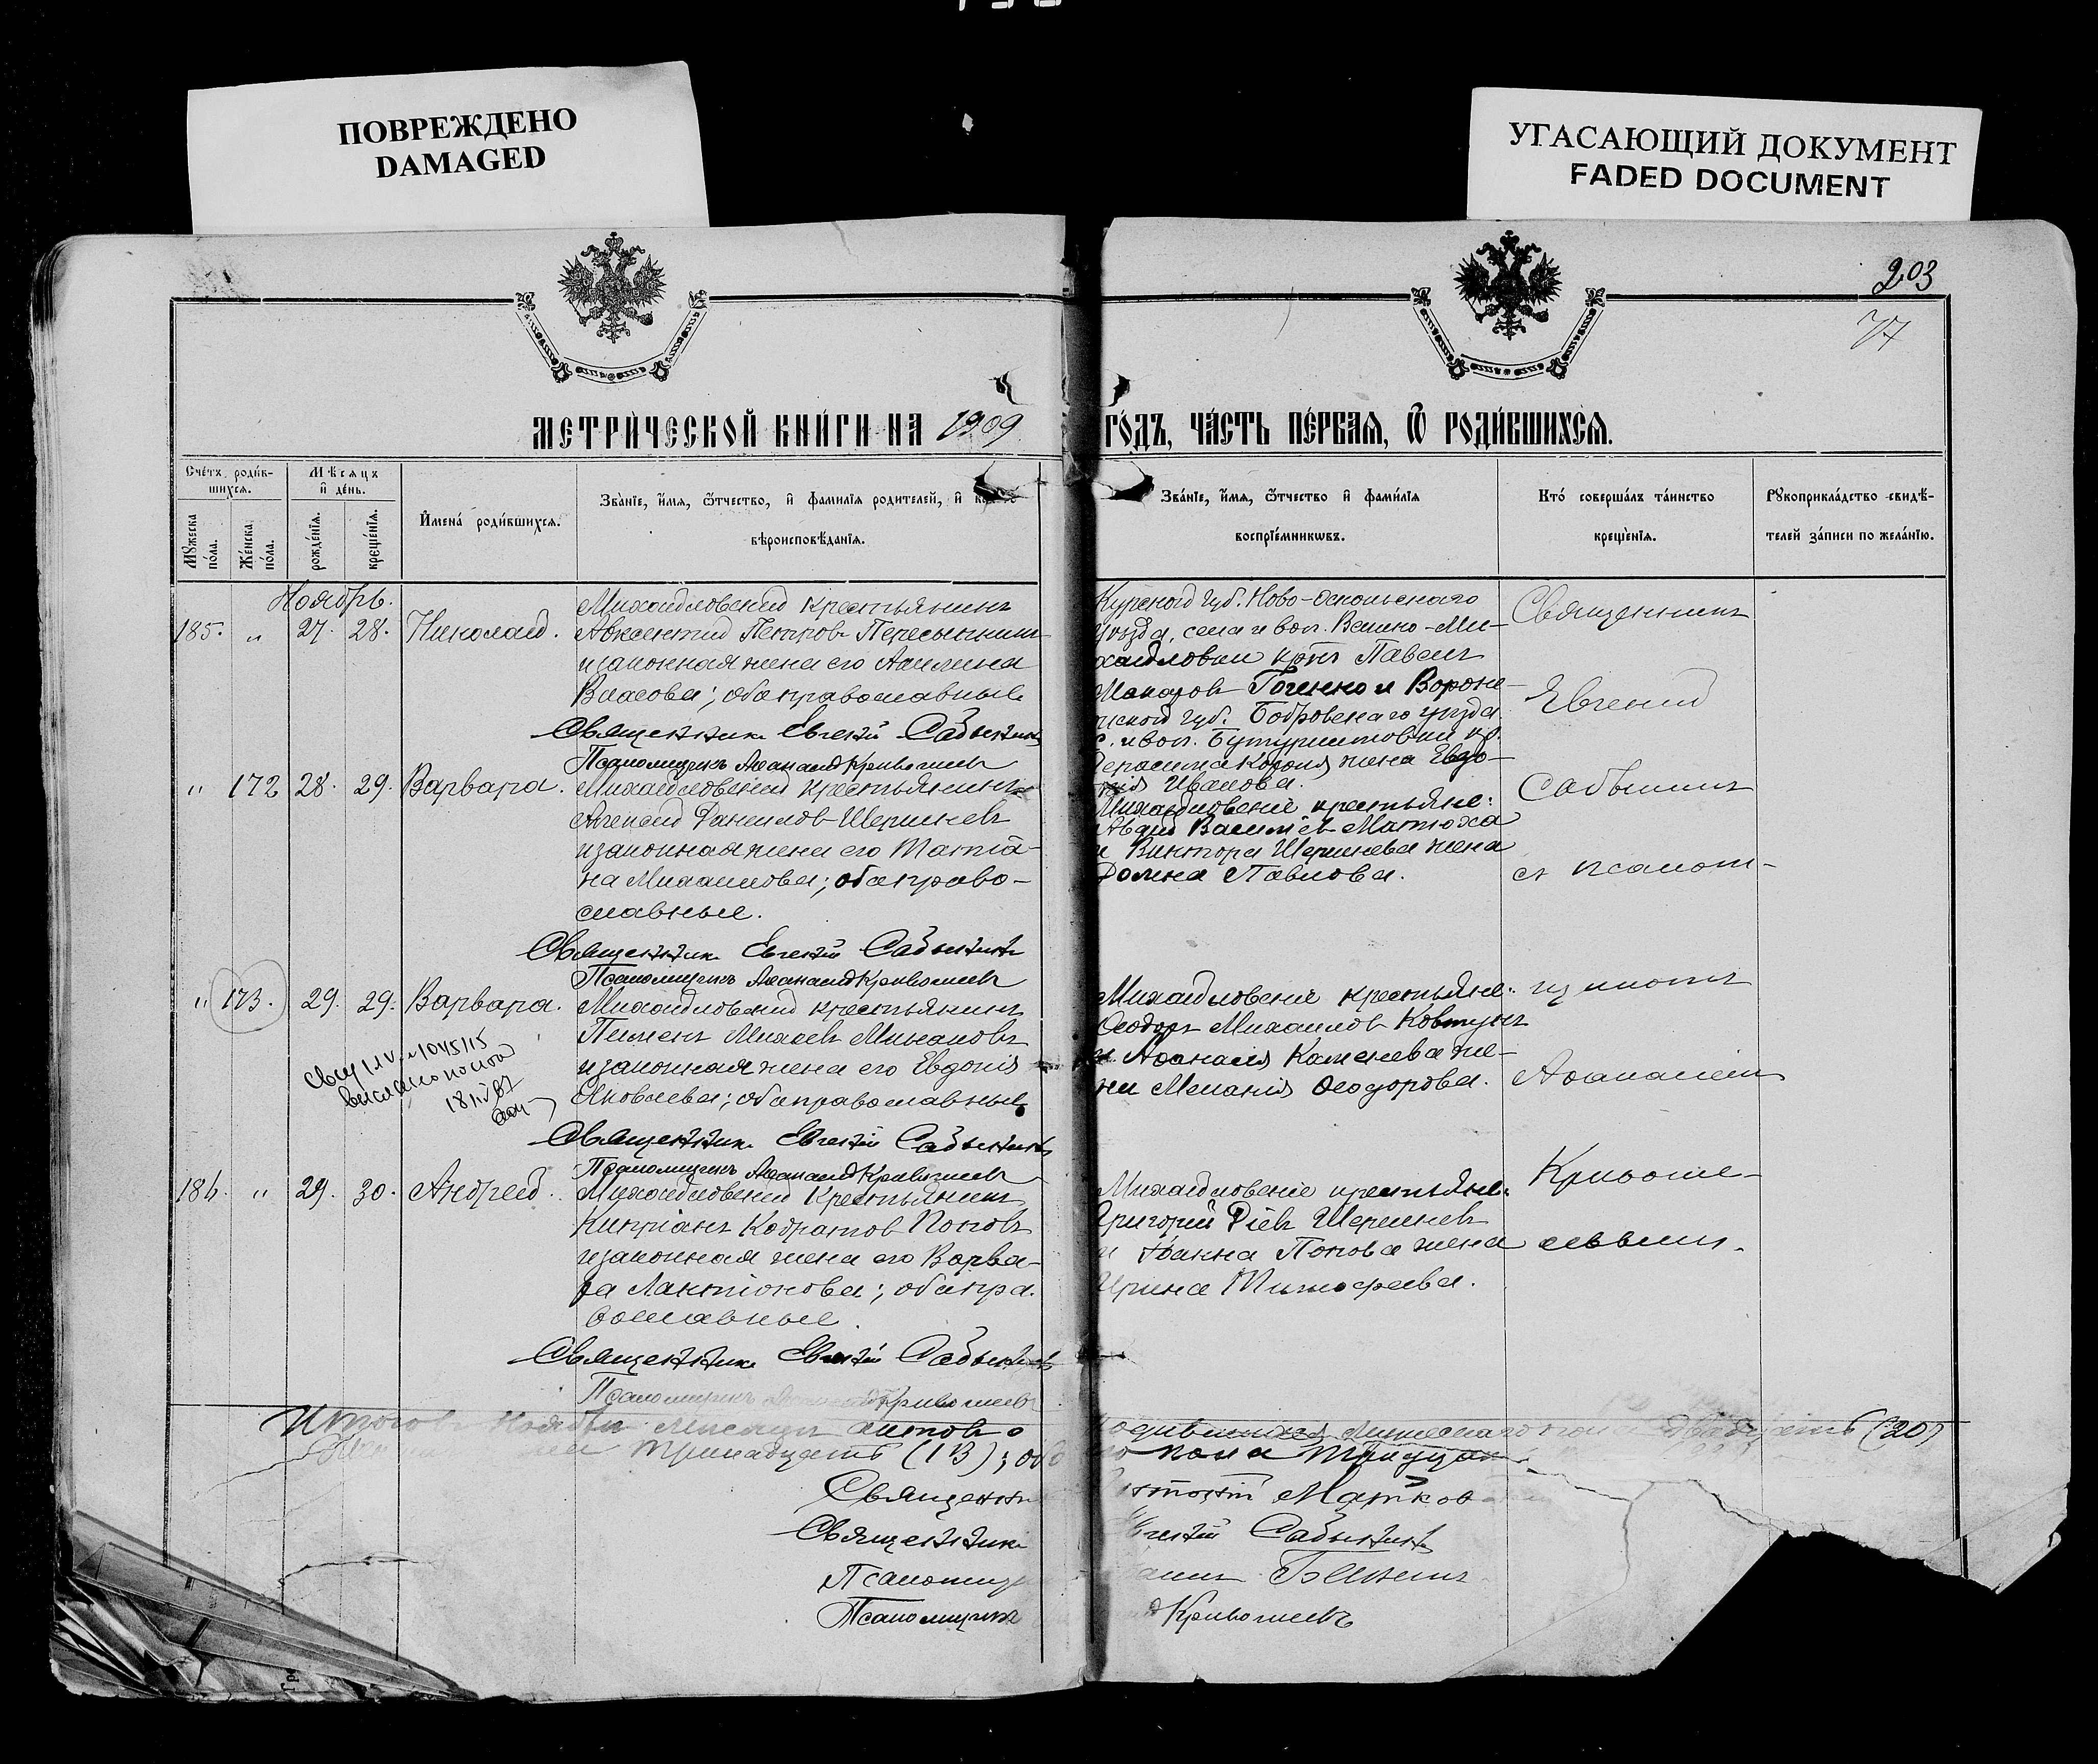 ПОВРЕЖДЕНО
DAMAGED
УГАСАЮЩИЙ ДОКУМЕНТ
FADED DOCUMENT
203
77
МЕТРИ́ЧЕСКОЙ КНИ́ГИ НА 1909
ГО́ДЪ, ЧА́СТЬ ПЕ́РВАѦ, Ѿ РОДИ́ВШИХСѦ.
Сче́тъ роди́в-
шихсѧ.
Мѣ́сѧцъ
и҆ де́нь.
Мꙋ́жеска
по́ла.
Же́нска
по́ла.
рожде́нїѧ.
креще́нїѧ.
И҆мена̀ роди́вшихсѧ.
Зва́нїе, и҆́мѧ, ѻ҆́тчество, и҆ фамилїѧ родителей, и҆
вѣроисповѣ́данїѧ.
Зва́нїе, и҆́мѧ, ѻ҆́тчество и҆ фами́лїѧ
воспрїе́мникѡвъ.
Кто́ соверша́лъ та́инство
креще́нїѧ.
Рꙋкоприкла́дство свидѣ́-
телей за́писи по жела́нїю.
Ноябрь.
185. „ 27. 28. Николай.
Михайловскій крестьянинъ
Авксентій Петровъ Пересыпкинъ
и законная жена его Акилина
Власова; оба православные
Священникъ Евгений Сабынинъ
Псаломщикъ Афанасий Кривошеевъ
Курской губ. Ново-Оскольскаго
уѣзда, села и вол. Велико-Ми-
хайловки крнъ Павелъ
Макаровъ Гоненко и Вороне-
жской губ. Бобровскаго уѣзда
с. и вол. Бутурлиновки кр.
жена Евдо-
кія Иванова.
Священникъ
Евгений
Сабынинъ
съ псалом-
щикомъ
Афанасіемъ
Кривоше-
евымъ.
„ 172 28. 29. Варвара.
Михайловскій крестьянинъ
Алексей Даниловъ Шершневъ
и законная жена его Татіа-
на Михайлова; оба право-
славные.
Священникъ Евгений Сабынинъ
Псаломщикъ Афанасий Кривошеевъ
Михайловскіе крестьяне:
Авдій Васильевъ Матюха
и Виктора Шершнева жена
Домна Павлова.
„ 173. 29. 29. Варвара.
Михайловскій крестьянинъ
Пименъ Михеевъ
и законная жена его Евдокія
Яковлева; оба православные
Священникъ Евгений Сабынинъ
Псаломщикъ Афанасий Кривошеевъ
Михайловскіе крестьяне:
Феодоръ Михайловъ Ковтунъ
и Афанасія Каменева же-
на Меланія Феодорова.
186. „ 29. 30. Андрей.
Михайловскій крестьянинъ
Кипріанъ Кодратовъ Поповъ
и законная жена его Варва-
ра Лактіонова; оба пра-
вославные.
Священникъ Евгений Сабынинъ
Псаломщикъ Кривошеевъ
Михайловскіе крестьяне:
Григорий Шершневъ
и Іоанна Попова жена
Ирина Тимофеева.
Итого въ Ноябрѣ мѣсяцѣ
родившихся мужескаго пола двадцать (20)
тринадцать (13);
пола тридцать
Священникъ
Священникъ Евгений Сабынинъ
Псаломщикъ
Псаломщикъ Кривошеевъ